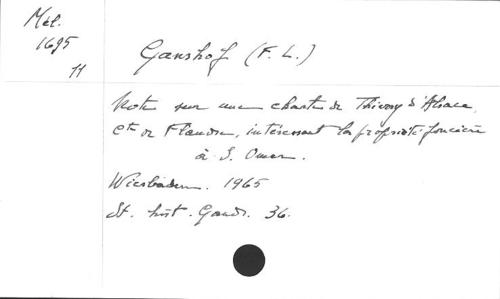 Mél.
1695
11
Ganshof (F. L.)
Note sur une charte de Thierry d'Alsace,
Cte de Flandre, intéressant la propriété foncière
à S. Omer.
Wiesbaden. 1965
St. hist. Gand. 36.